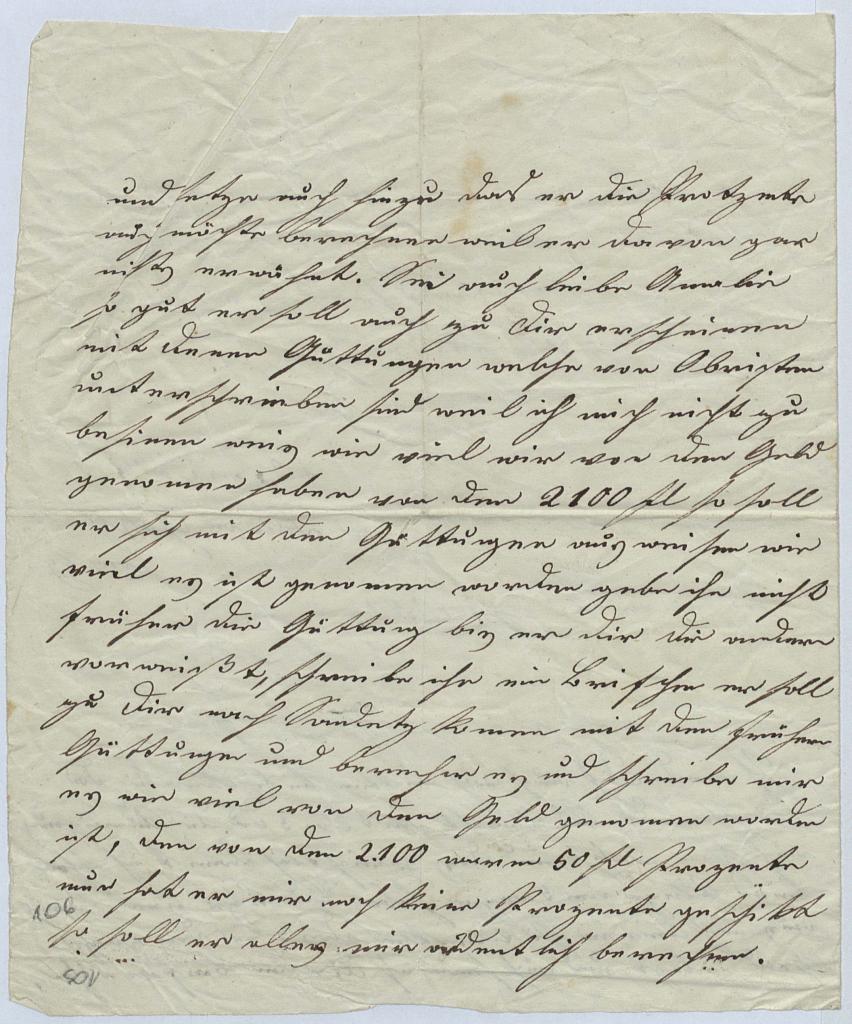 und setze auch hinzu das er die Protzente
auch möchte berechnen weil er davon gar
nichts erwähnt. Sei auch liebe Amalie
so gut er soll auch zu Dir erscheinen
mit denen Quttungen welche von Obristen
unterschrieben sind weil ich mich nicht zu
besinen weis wie viel wir von den Geld
genomen haben von den 2100 fl so soll
er sich mit den Quttungen ausweisen wie
viel es ist genomen worden gebe ihn nicht
früher die Quttung bis er dir die andern
vorweißt, schreibe ihn ein Brifchen er soll
zu Dir nach komen mit den frühern
Quttungen und berechne es und schreibe mir
es wie viel von den Geld genomen worden
ist, den von den 2.100 waren 50 fl Prozente
nun hat er mir noch keine Prozente geschikt
so soll er alles mir ordentlich berechnen.
106